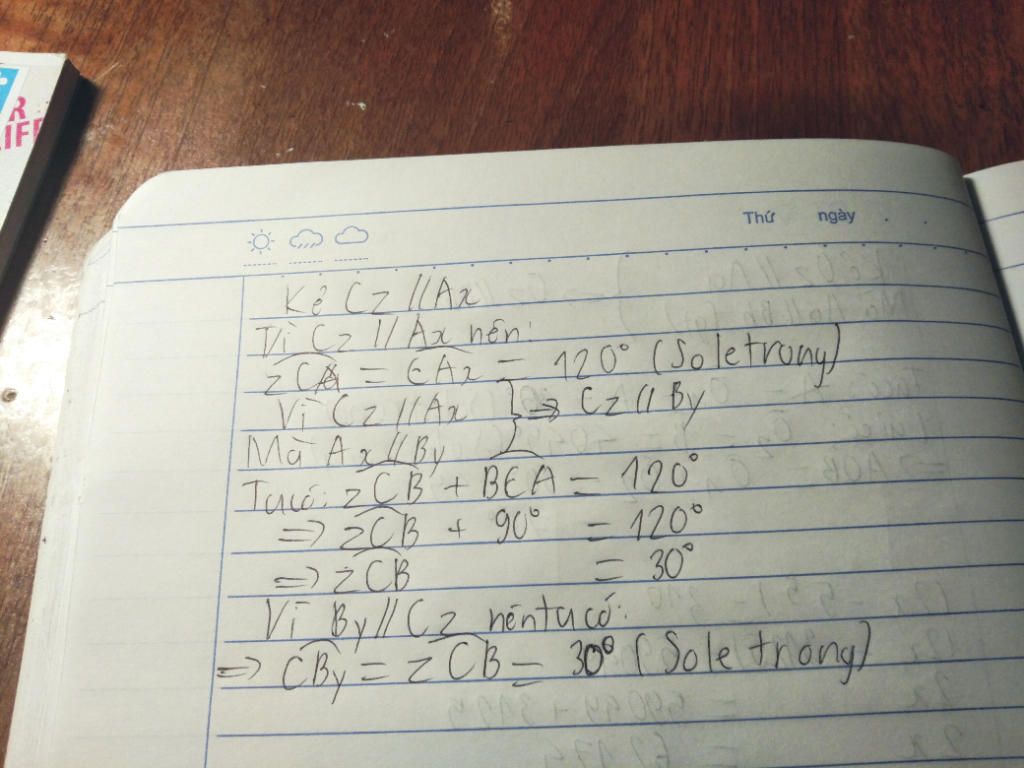 R
IFE
Thứ ngày
Kẻ Cz // Ax
Vì Cz // Ax nên:
zCA = CAx = 120° (So le trong)
Vì Cz // Ax } => Cz // By
Mà Ax // By
Ta có: zCB + BCA = 120°
=> zCB + 90° = 120°
=> zCB = 30°
Vì By // Cz nên ta có:
=> CBy = zCB = 30° (So le trong)